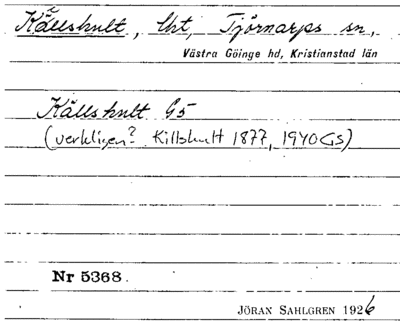 Källshult, lht, Tjörnarps sn,
Västra Göinge hd, Kristianstad län
Källshult G5
(verkligen? Killshult 1877, 1940 GS)
Nr 5368.
JÖRAN SAHLGREN 1926